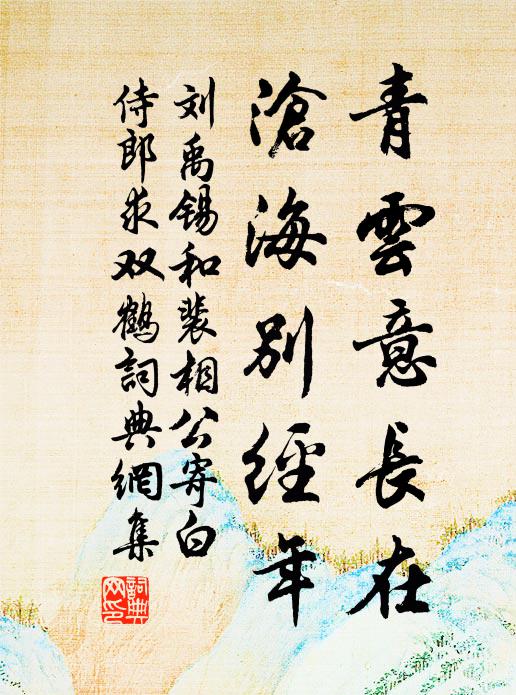 青雲意長在
滄海別經年
刘禹锡和裴相公寄白
侍郎求双鹤詞典網集
詞典網印